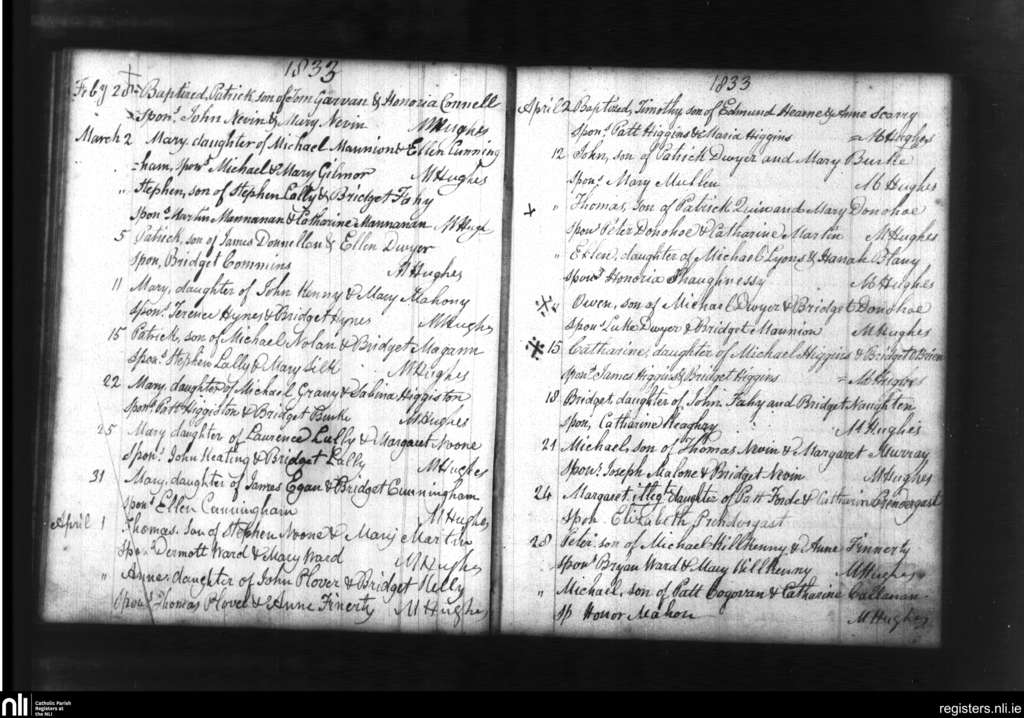 1833
Feby 28th Baptized, Patrick, son of Tom Garvan & Honoria Connell
Sponrs John Nevin & Mary Nevin MHughes
March 2 Mary, daughter of Michael Mannion & Ellen Cunning
=ham, sponrs Michael & Mary Gilmor MHughes
" Stephen, son of Stephen Lally & Bridget Fahy
Sponrs Martin Mannanan & Catharine Mannanan MHugh
5 Patrick, son of James Donnellan & Ellen Dwyer
Spon, Bridget Commins MHughes
11 Mary, daughter of John Kenny & Mary Mahony
Sponrs Terence Hynes & Bridget Hynes MHughes
15 Patrick, son of Michael Nolan & Bridget Magann
Sponrs Stephen Lally & Mary Silk MHughes
22 Mary, daughter of Michael Grany & Sabina Higgiston
Sponrs Patt Higgiston & Bridget Burke MHughes
25 Mary daughter of Laurence Lally & Margaret Noone
Sponrs John Keating & Bridget Lally MHughes
31 Mary, daughter of James Egan & Bridget Cunningham
Sponr Ellen Cunningham MHughes
April 1 Thomas, son of Stephen Noone & Mary Martin
Sponrs Dermott Ward & Mary Ward MHughes
" Anne, daughter of John Plover & Bridget Kelly
Sponrs Thomas Plover & Anne Finerty MHughes
1833
April 2 Baptized, Timothy, son of Edmund Hearne & Anne Scarry
Sponrs Patt Higgins & Maria Higgins = MHughes
12 John, son of Patrick Dwyer and Mary Burke
Sponr Mary Mullen MHughes
" Thomas, son of Patrick Quin and Mary Donohoe
Sponrs Peter Donohoe & Catharine Martin MHughes
" Ellen, daughter of Michael Lyons & Hanah Blavy
Sponr Honoria Shaughnessy MHughes
" Owen, son of Michael Dwyer & Bridget Donohoe
Sponrs Luke Dwyer & Bridget Mannion MHughes
15 Catharine, daughter of Michael Higgins & Bridget O'Brien
Sponrs James Higgins & Bridget Higgins = MHughes
18 Bridget, daughter of John Fahy and Bridget Naughten
Spon, Catharine Keaghry MHughes
21 Michael, son of Thomas Nevin & Margaret Murray
Sponrs Joseph Malone & Bridget Nevin MHughes
24 Margaret, illeg. daughter of Patt Forde & Catharine Prendergast
Spon. Elizabeth Prindergast
28 Peter son of Michael Killkenny & Anne Finnerty
Sponrs Bryan Ward & Mary Killkenny MHughes
" Michael, son of Patt Cogovan & Catharine Callanan
Sp Honor Mahon MHughes
nli
Catholic Parish
Registers at
the NLI
registers.nli.ie